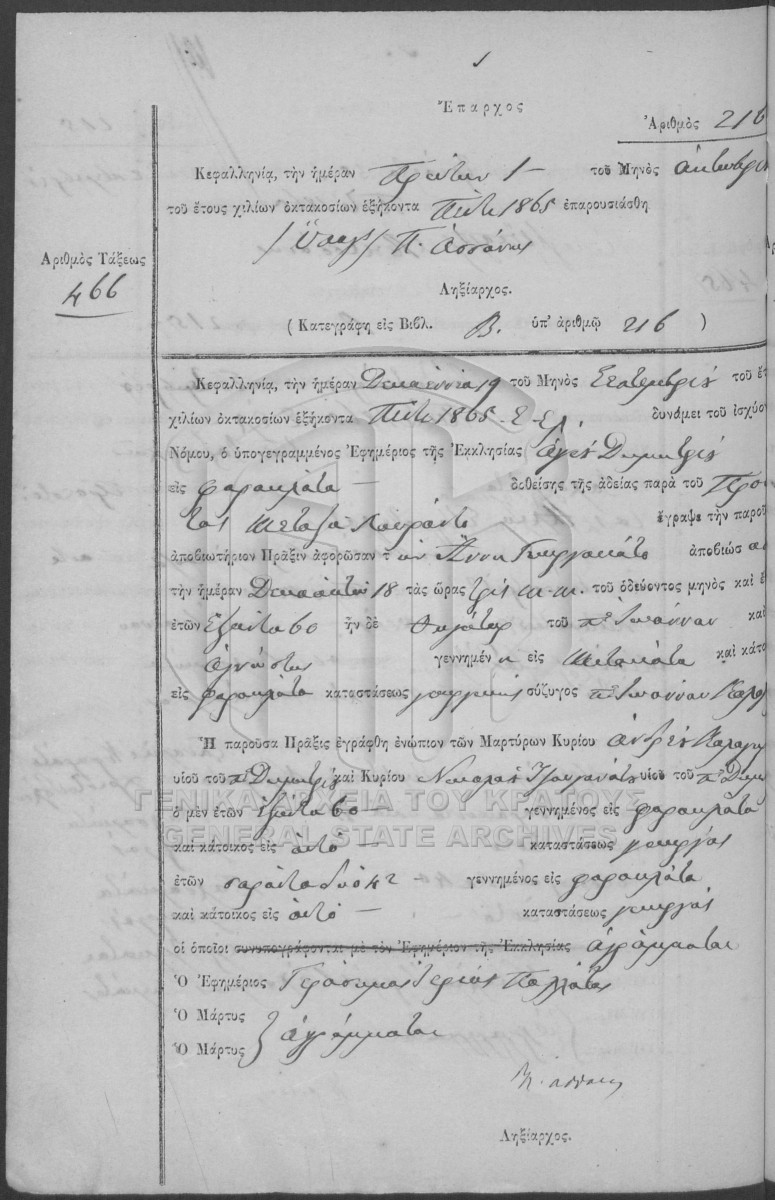 Ἔπαρχος
Ἀριθμὸς 216
Κεφαλληνίᾳ, τὴν ἡμέραν Πρώτην 1 τοῦ Μηνὸς Οκτωβρίου
τοῦ ἔτους χιλίων ὀκτακοσίων ἑξήκοντα πέντε 1865 ἐπαρουσιάσθη
Π.
Ἀριθμὸς Τάξεως
466
Ληξίαρχος.
(Κατεγράφη εἰς Βιβλ. Β. ὑπ' ἀριθμῷ 216)
Κεφαλληνίᾳ, τὴν ἡμέραν Δεκαεννέα 19 τοῦ Μηνὸς Σεπτεμβρίου τοῦ ἔτ
χιλίων ὀκτακοσίων ἑξήκοντα πέντε 1865 δυνάμει τοῦ ἰσχύον
Νόμου, ὁ ὑπογεγραμμένος Ἐφημέριος τῆς Ἐκκλησίας Αγίου Δημητρίου
εἰς φαρακλάτα δοθείσης τῆς ἀδείας παρὰ τοῦ Πρω
Μεταξᾶ ἔγραψε τὴν παροῦ
ἀποβιωτήριον Πρᾶξιν ἀφορῶσαν τὴν Άννα ἀποβιώσα
τὴν ἡμέραν Δεκαοκτώ 18 τὰς ὥρας τρίς μ.μ. τοῦ ὁδεύοντος μηνὸς καὶ ἔ
ἐτῶν Εξήντα 60 ἦν δὲ θυγάτηρ τοῦ πο Ιωάννου καὶ
αγνώστης γεννημένη εἰς Μεταξάτα καὶ κάτο
εἰς φαρακλάτα καταστάσεως γεωργικής σύζυγος πο Ιωάννου
Ἡ παροῦσα Πρᾶξις ἐγράφθη ἐνώπιον τῶν Μαρτύρων Κυρίου Ανδρέου
υἱοῦ τοῦ πο Δημητρίου καὶ Κυρίου Νικολάου υἱοῦ τοῦ πο Δημ
ὁ μὲν ἐτῶν εξήντα 60 γεννημένος εἰς φαρακλάτα
καὶ κάτοικος εἰς αυτό καταστάσεως γεωργός
ἐτῶν σαράντα δύο 42 γεννημένος εἰς φαρακλάτα
καὶ κάτοικος εἰς αυτό καταστάσεως γεωργός
οἱ ὁποῖοι συνυπογράφονται μὲ τὸν Ἐφημέριον τῆς Ἐκκλησίας αγράμματοι
Ὁ Ἐφημέριος Γεράσιμος Ιερεύς
Ὁ Μάρτυς
Ὁ Μάρτυς } αγράμματοι
Ληξίαρχος.
ΓΕΝΙΚΑ ΑΡΧΕΙΑ ΤΟΥ ΚΡΑΤΟΥΣ
GENERAL STATE ARCHIVES